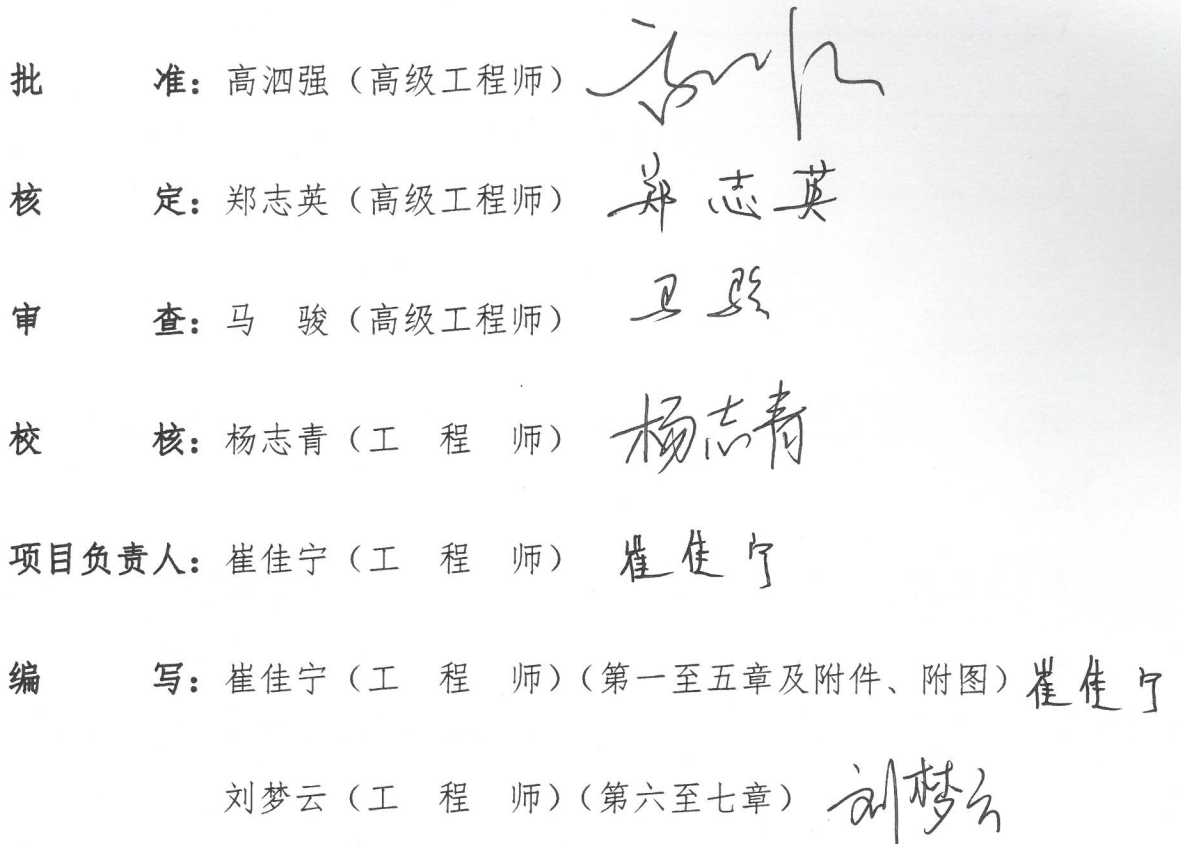 批 准：高泗强（高级工程师）
核 定：郑志英（高级工程师） 郑志英
审 查：马 骏（高级工程师） 马骏
校 核：杨志青（工 程 师） 杨志青
项目负责人：崔佳宁（工 程 师） 崔佳宁
编 写：崔佳宁（工 程 师）（第一至五章及附件、附图） 崔佳宁
刘梦云（工 程 师）（第六至七章） 刘梦云